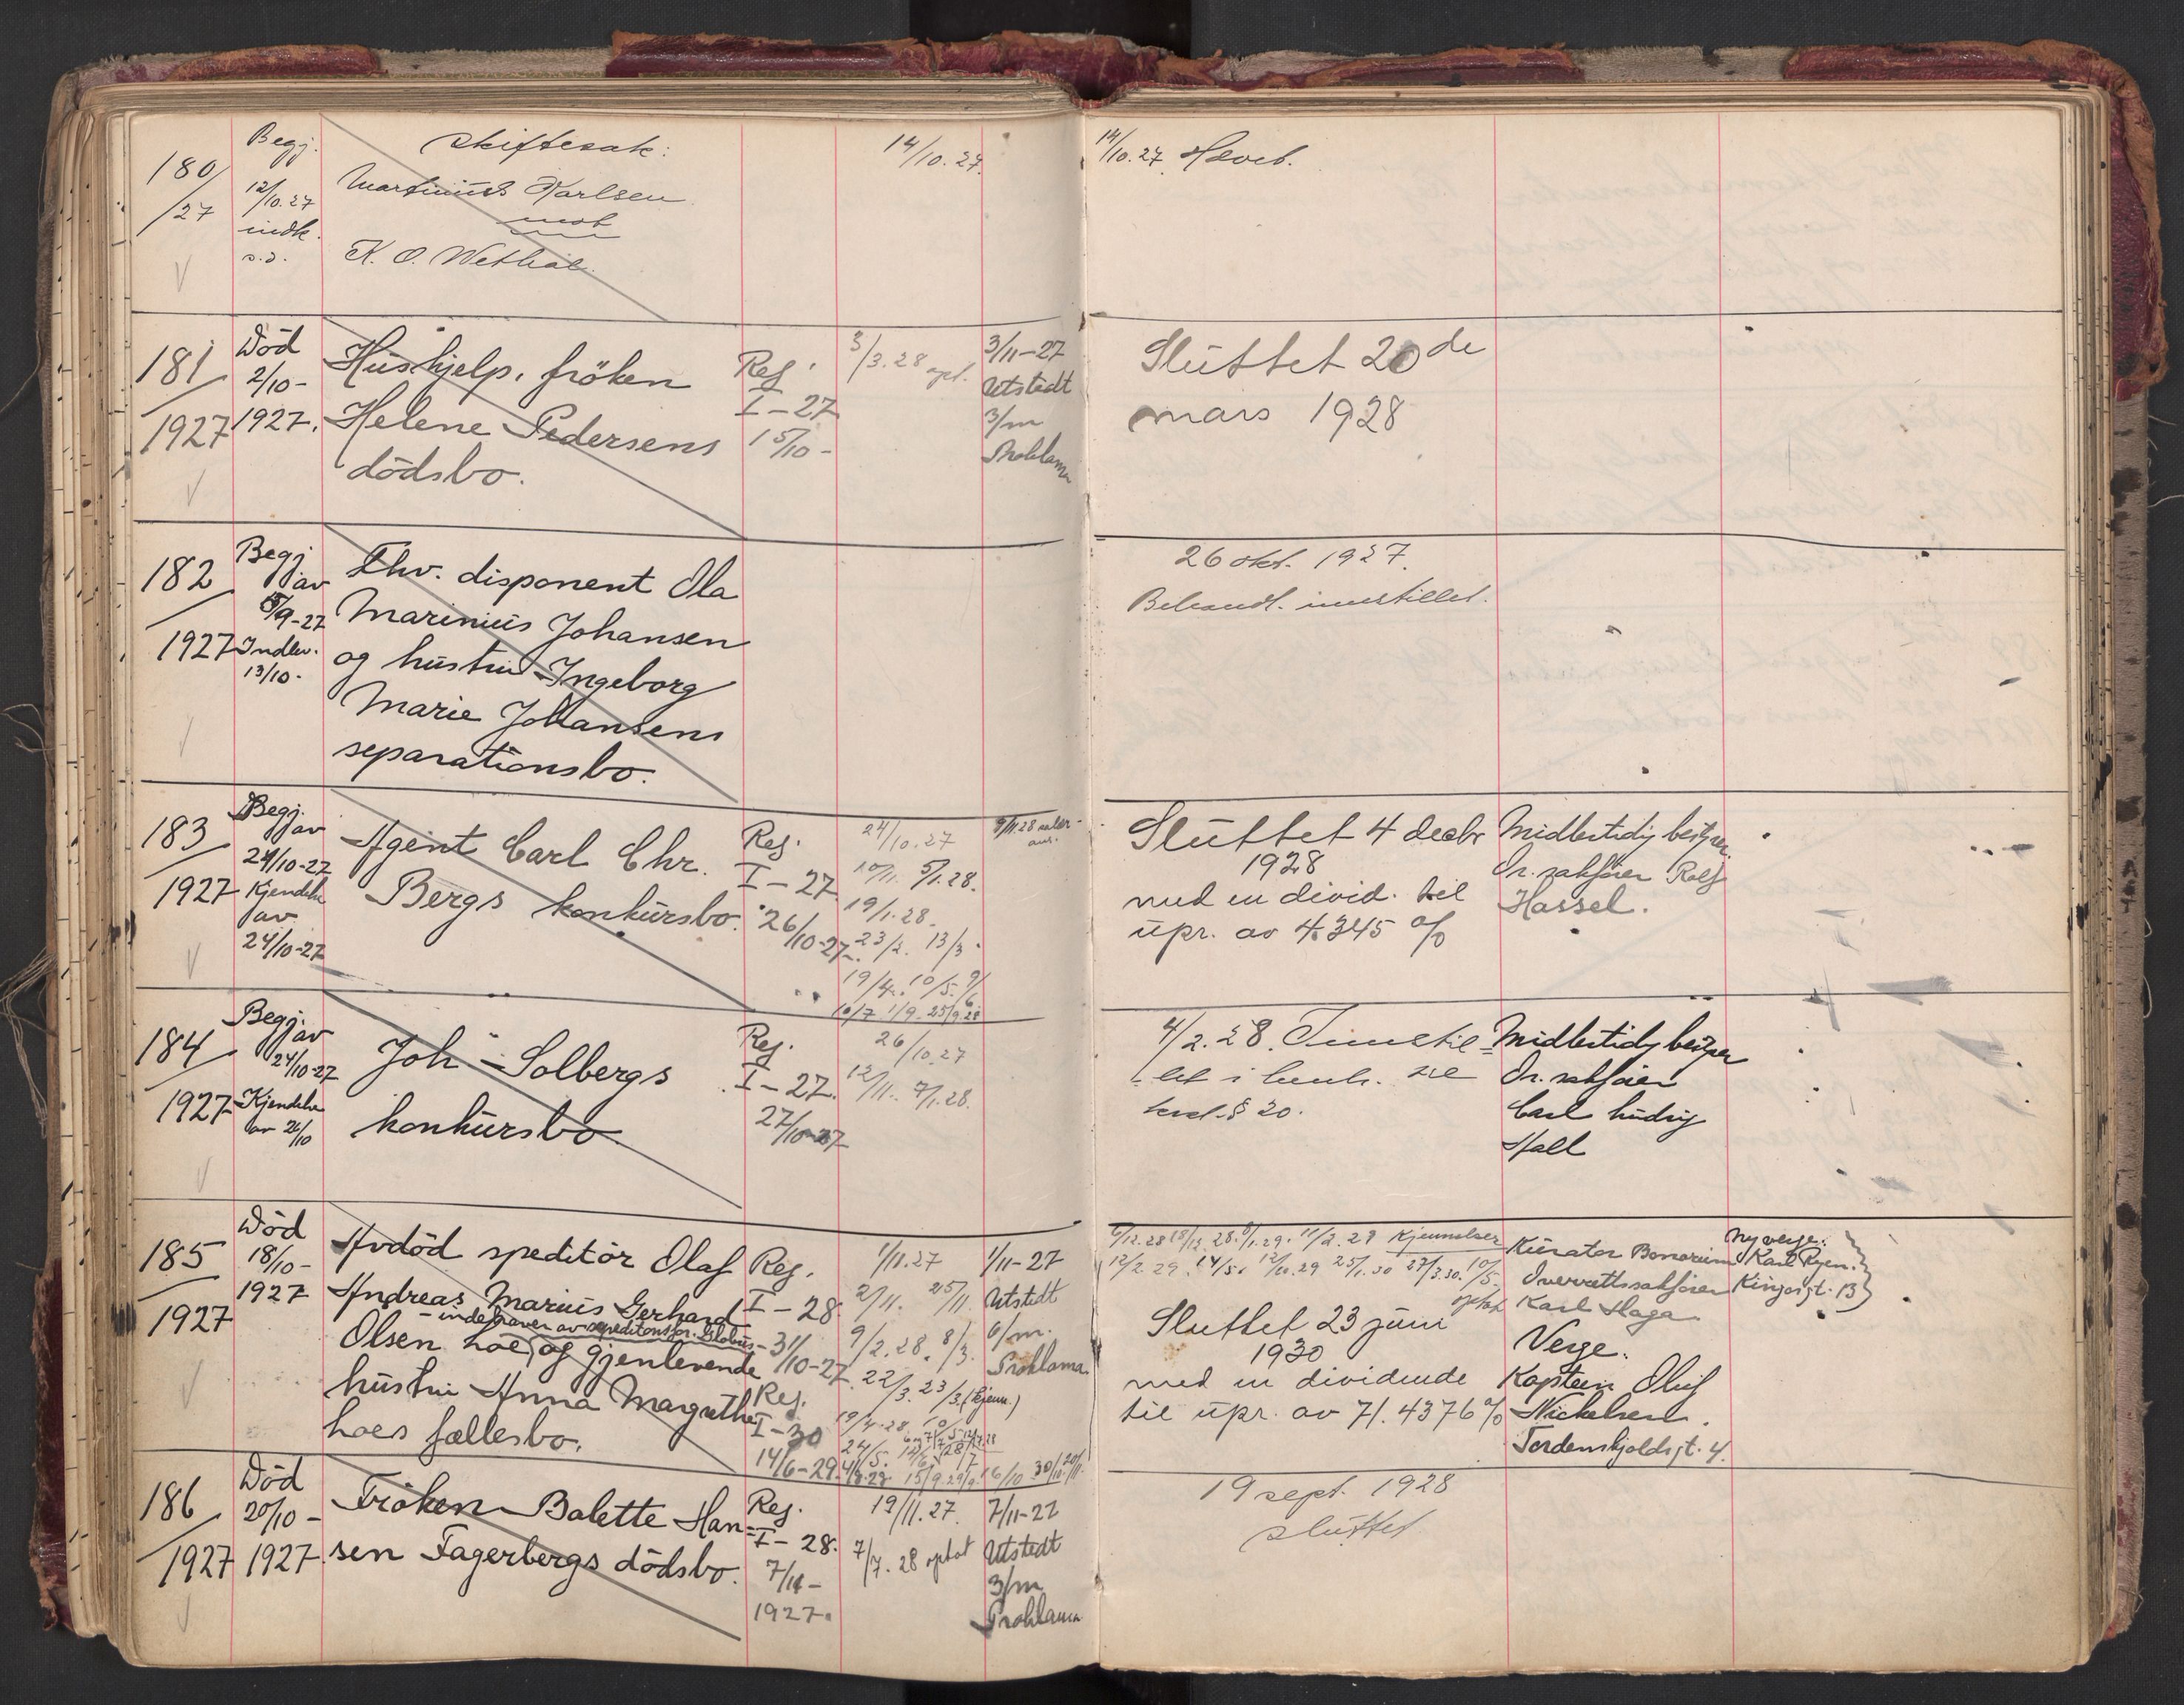 180/27
Begj.
12/10.27
indk.
s.d.
Skiftesak:
Martinius Karlsen
mot
K. O. Wethal.
14/10.27.
14/10.27 Hævet.
181/1927
Död
2/10-
1927.
Hushjelp, fröken
Helene Pedersens
dödsbo.
Reg.
I-27
15/10-
3/3.28 opt.
3/11-27
Utstedt
3/m
Proklama
Sluttet 20de
mars 1928
182/1927
Begj.
av
5/9-27
Indlev.
13/10.
Fhv. disponent Ola
Marinius Johansen
og hustru Ingeborg
Marie Johansens
separationsbo.
26 okt. 1927.
Behandl. innstillet.
183/1927
Begj.
av
24/10-27
Kjendelse
av
24/10-27
Agent Carl Chr.
Bergs konkursbo.
Reg.
I-27
26/10-27
24/10.27
10/11. 5/1.28.
19/1.28.
23/2. 13/3.
19/4. 10/5. 9/6
10/7 1/9. 25/9.28
Sluttet 4 decbr
1928
med en divid. til
upr. av 4.345 %
Midlertidig bestyrer
Or. sakfører Rolf
Hassel.
184/1927
Begj.
av
24/10-27
Kjendelse
av 26/10
Joh. Solbergs
konkursbo
Reg.
I-27.
27/10-27
26/10.27
12/11. 7/1.28.
4/2.28. Innstil-
let i henh. til
§ 20.
Midlertidig bestyrer
Or. sakfører
Carl Ludvig
Hall
185/1927
Död
18/10-
1927
Avdöd speditör Olaf
Andreas Marius Gerhard
- indehaver av speditionsfor. Globus -
Olsen Hoe, og gjenlevende
hustru Anna Margrethe
Hoes fællesbo.
Reg.
I-28
31/10-27
Reg.
I-30
14/6-29
1/11.27
2/11. 25/11.
9/2.28. 8/3.
22/3. 23/3. (kjenn.)
19/4-28
1/11-27
Utstedt
6/m.
Proklama
Kjennelser
12/2.29. 14/5. 12/11.29 25/1.30 27/3.30. 10/5.
optat
Sluttet 23 juni
1930
med en dividende
til upr. av 71.4376 %
Kurator Bonorum
Overretssakfører
Karl Haga
Verge:
Kaptein Oluf
Nickelsen.
Tordenskjoldsgt. 4.
Ny verge:
Karl Ryen.
Kingosgt. 13
186/1927
Död
20/10-
1927
Fröken Balette Han=
sen Fagerbergs dödsbo.
Reg.
I-28.
7/11-
1927.
19/11.27.
7/7.28 optat
7/11-27
Utstedt
3/m
Proklama
19 sept. 1928
sluttet